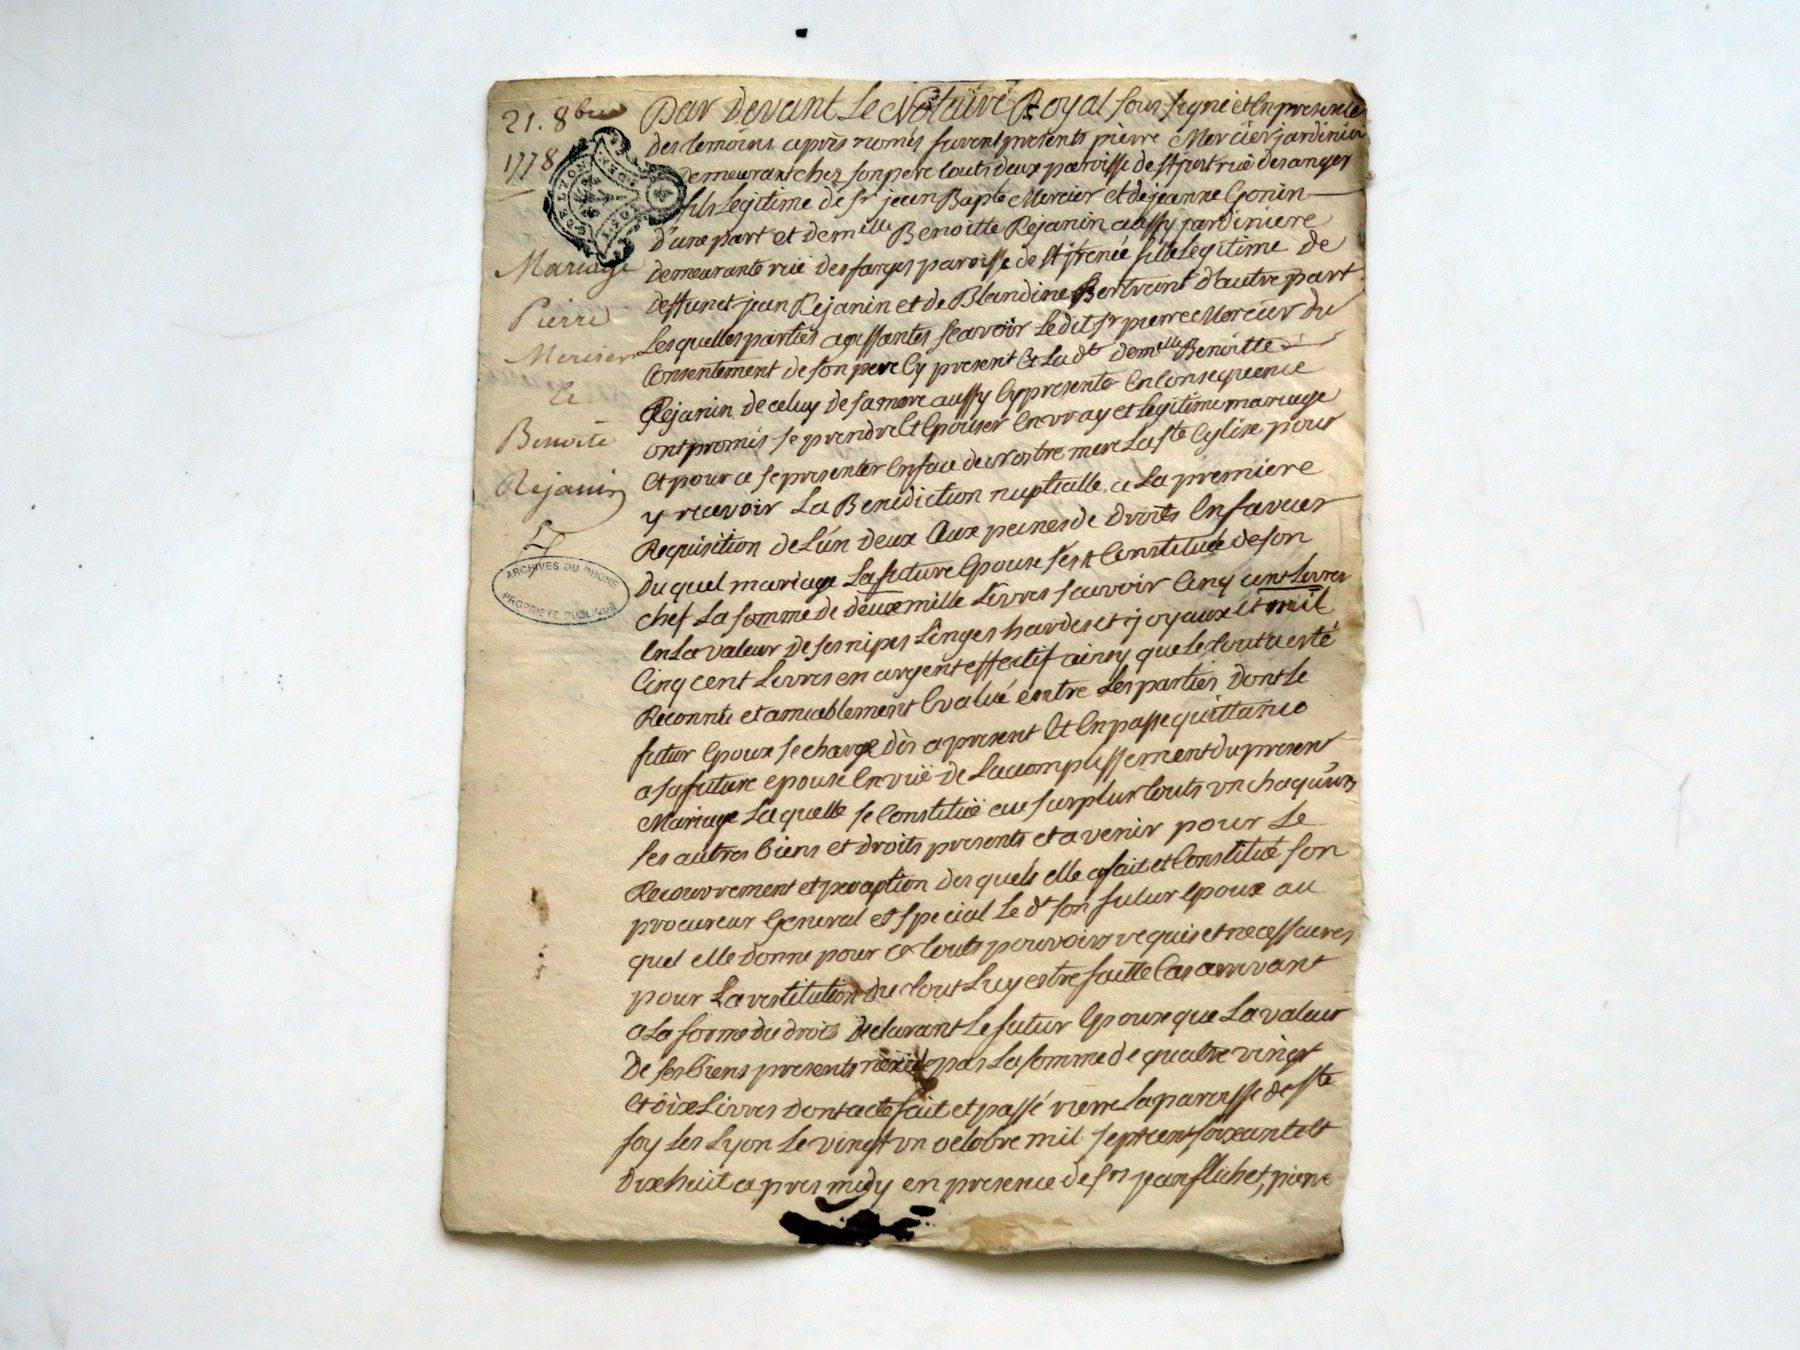 21. 8bre
1778
Mariage
Pierre
Mercier
et
Benoite
Rejanin
ARCHIVES DU RHONE
PROPRIETE PUBLIQUE
Par Devant Le Notaire Royal sous signé et En presence
des temoins après només furent presents pierre Mercier jardinier
demeurant chez son pere touts deux paroisse de st just ruë des anges
fils Legitime de sr jean Bapte Mercier et de jeanne Gonin
D'une part et demlle Benoitte Rejanin aussy jardiniere
demeurante ruë des farges paroisse de st jrenée fille Legitime de
deffunct jean Rejanin et de Blandine Bertrant d'autre part
Lesquelles parties agissantes scavoir Ledit sr pierre Mercier du
Consentement de son pere Cy present Et La dt demlle Benoitte
Rejanin de celuy de sa mere aussy Cy presente En Consequence
ont promis se prendre Et Epouser En vray et Legitime mariage
Et pour ce se presenter En face de nostre mere La ste Eglise pour
y recevoir La Benediction nuptialle a La premiere
Requisition de L'un deux Aux peines de droits En faveur
Du quel mariage La future Epouse s'est Constituée de son
chef La somme de deux mille Livres scavoir Cinq cent Livres
En La valeur de ses nipes Linges hardes et joyaux Et mil
Cinq cent Livres en argent effectif ainsy que Le tout a esté
Reconnu et amiablement Evalué entre Les parties Dont Le
futur Epoux se charge dès a present Et En passe quittance
a sa future epouse En vuë de L'acomplissement du present
Mariage La quelle se Constituë au surplus touts un chaqu'uns
ses autres biens et droits presents et a venir pour Le
Recouvrement et perception des quels elle a fait et Constitué son
procureur General et special Le dt son futur Epoux au
quel elle donne pour ce touts pouvoirs requis et necessaires
pour La restitution du tout Luy estre faitte Cas arrivant
a La forme du droit declarant Le futur Epoux que La valeur
De ses biens presents n'exede pas La somme de quatre vingt
Et dix Livres dont acte fait et passé La paroisse de ste
foy Les Lyon Le vingt un octobre mil sept cent soixante Et
Dix huit apres midy en presence de srs jean pierre